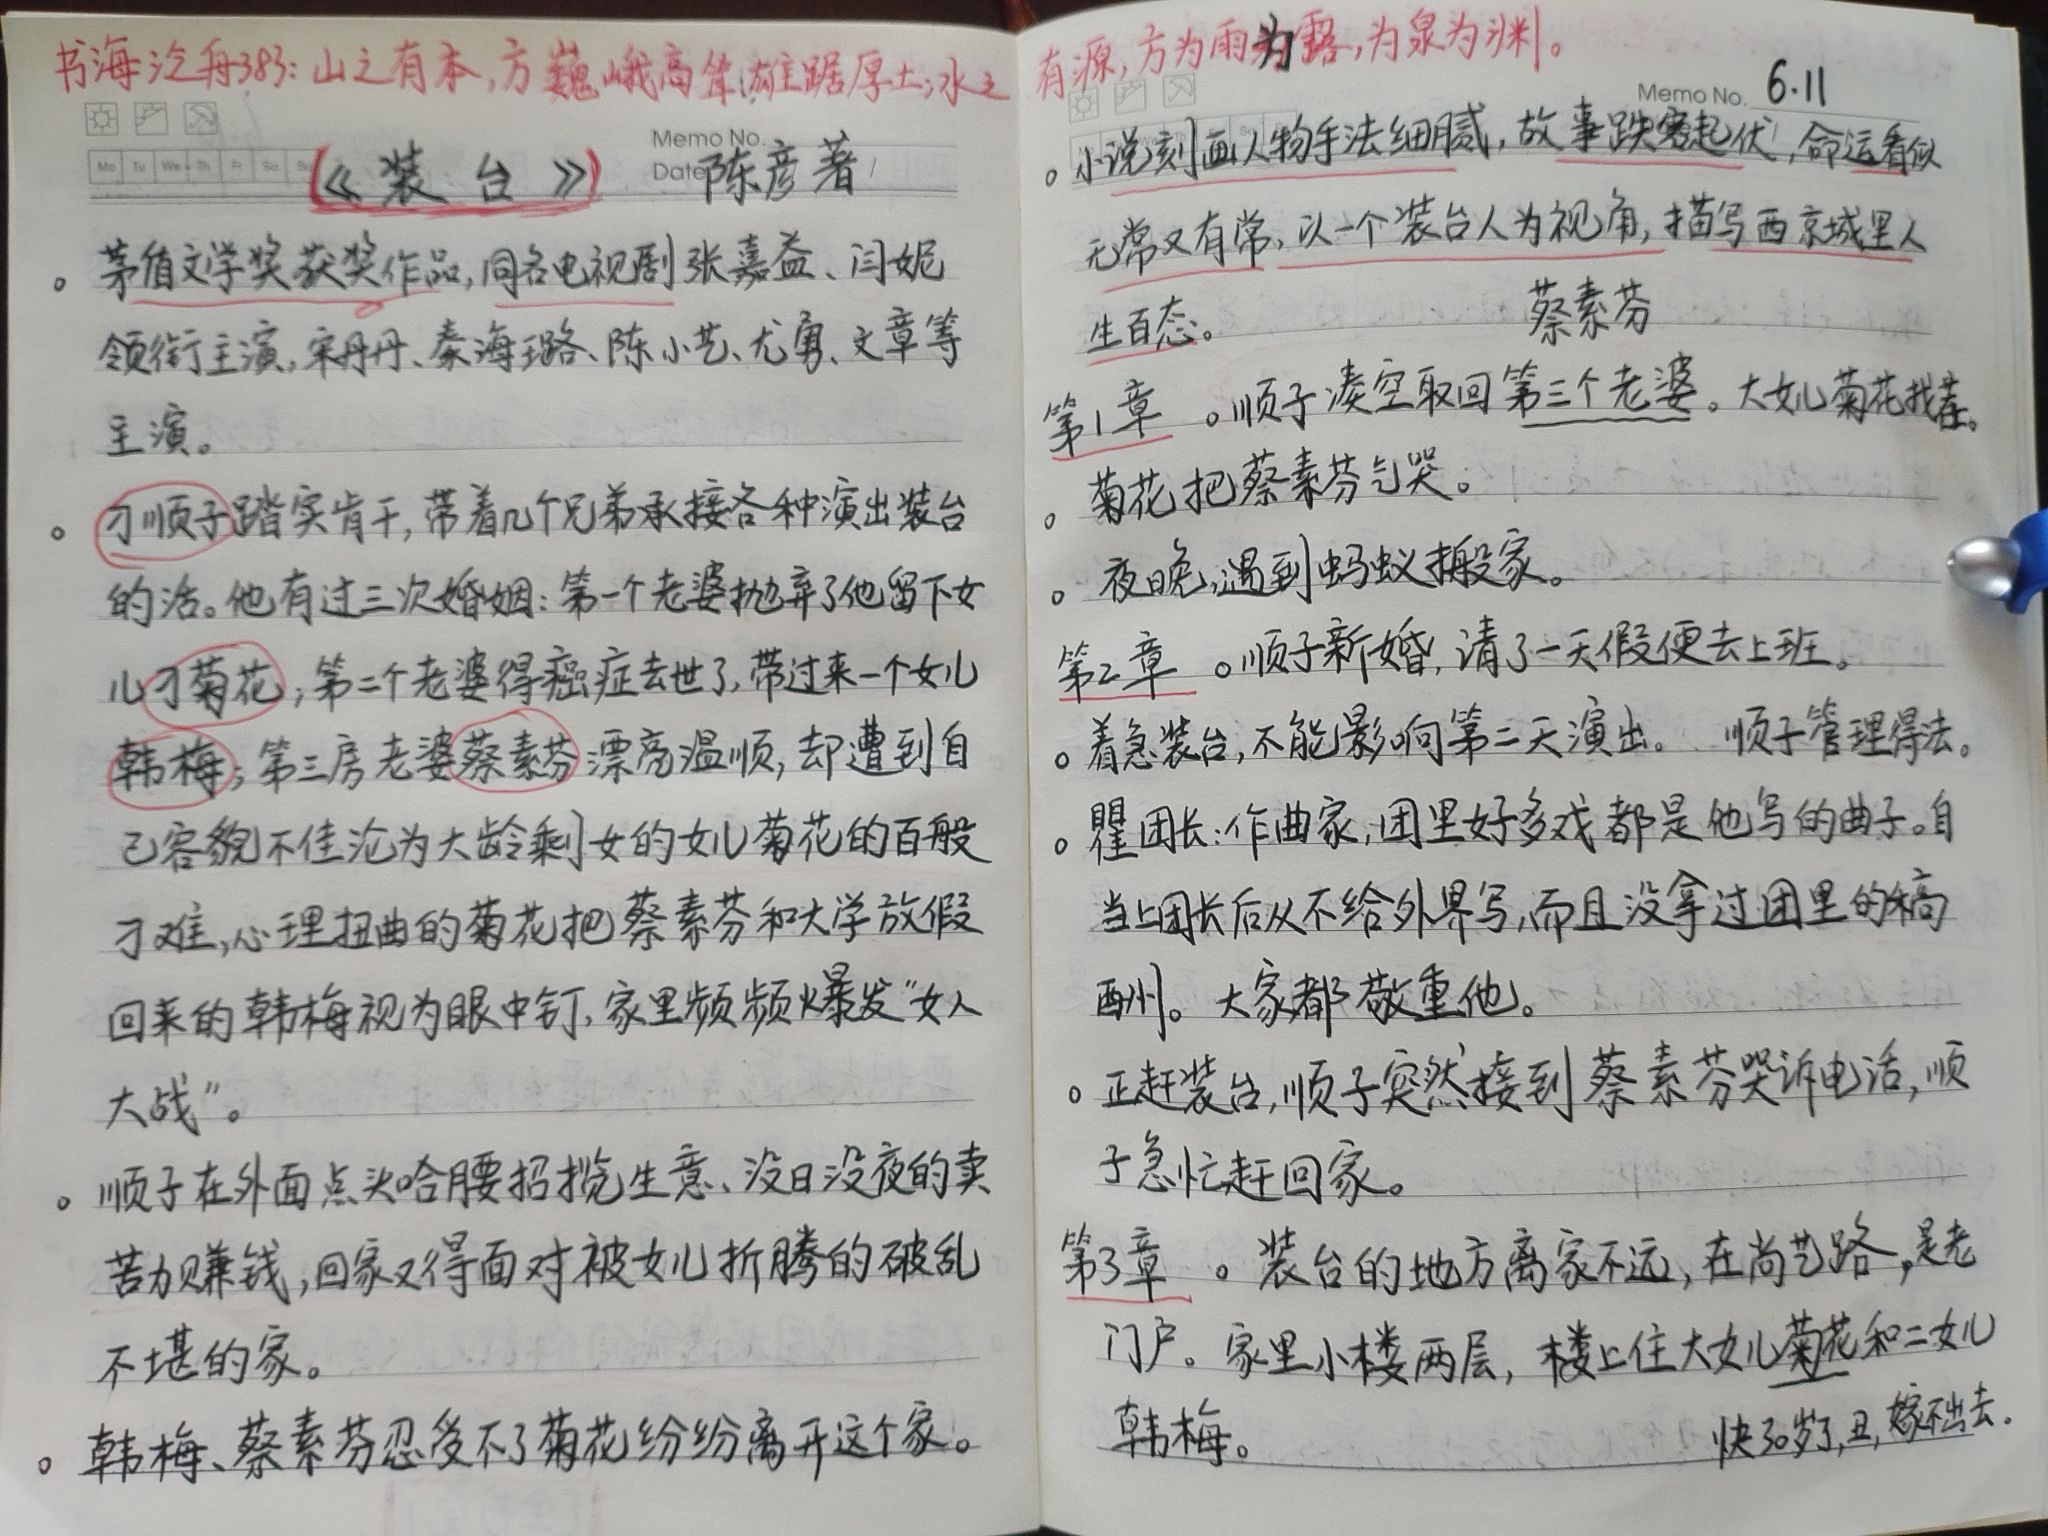 书海泛舟383：山之有本，方巍峨高耸，雄踞厚土；水之
Memo No.
Date
Mo Tu We Th Fr Sa Su
《装台》 陈彦著
。茅盾文学奖获奖作品，同名电视剧张嘉益、闫妮
领衔主演，宋丹丹、秦海璐、陈小艺、尤勇、文章等
主演。
。刁顺子踏实肯干，带着几个兄弟承接各种演出装台
的活。他有过三次婚姻：第一个老婆抛弃了他留下女
儿刁菊花；第二个老婆得癌症去世了，带过来一个女儿
韩梅；第三房老婆蔡素芬漂亮温顺，却遭到自
己容貌不佳沦为大龄剩女的女儿菊花的百般
刁难，心理扭曲的菊花把蔡素芬和大学放假
回来的韩梅视为眼中钉，家里频频爆发“女人
大战”。
。顺子在外面点头哈腰招揽生意、没日没夜的卖
苦力赚钱，回家又得面对被女儿折腾的破乱
不堪的家。
。韩梅、蔡素芬忍受不了菊花纷纷离开这个家。
有源，方为雨为露，为泉为渊。
Memo No. 6.11
。小说刻画人物手法细腻，故事跌宕起伏，命运看似
无常又有常，以一个装台人为视角，描写西京城里人
生百态。
蔡素芬
第1章 。顺子凑空取回第三个老婆。大女儿菊花找茬。
。菊花把蔡素芬气哭。
。夜晚，遇到蚂蚁搬家。
第2章 。顺子新婚，请了一天假便去上班。
。着急装台，不能影响第二天演出。 顺子管理得法。
。瞿团长：作曲家，团里好多戏都是他写的曲子。自
当上团长后从不给外界写，而且没拿过团里的稿
酬。大家都敬重他。
。正赶装台，顺子突然接到蔡素芬哭诉电话，顺
子急忙赶回家。
第3章 。装台的地方离家不远，在尚艺路，是老
门户。家里小楼两层，楼上住大女儿菊花和二女儿
韩梅。 快30岁了，丑，嫁不出去。